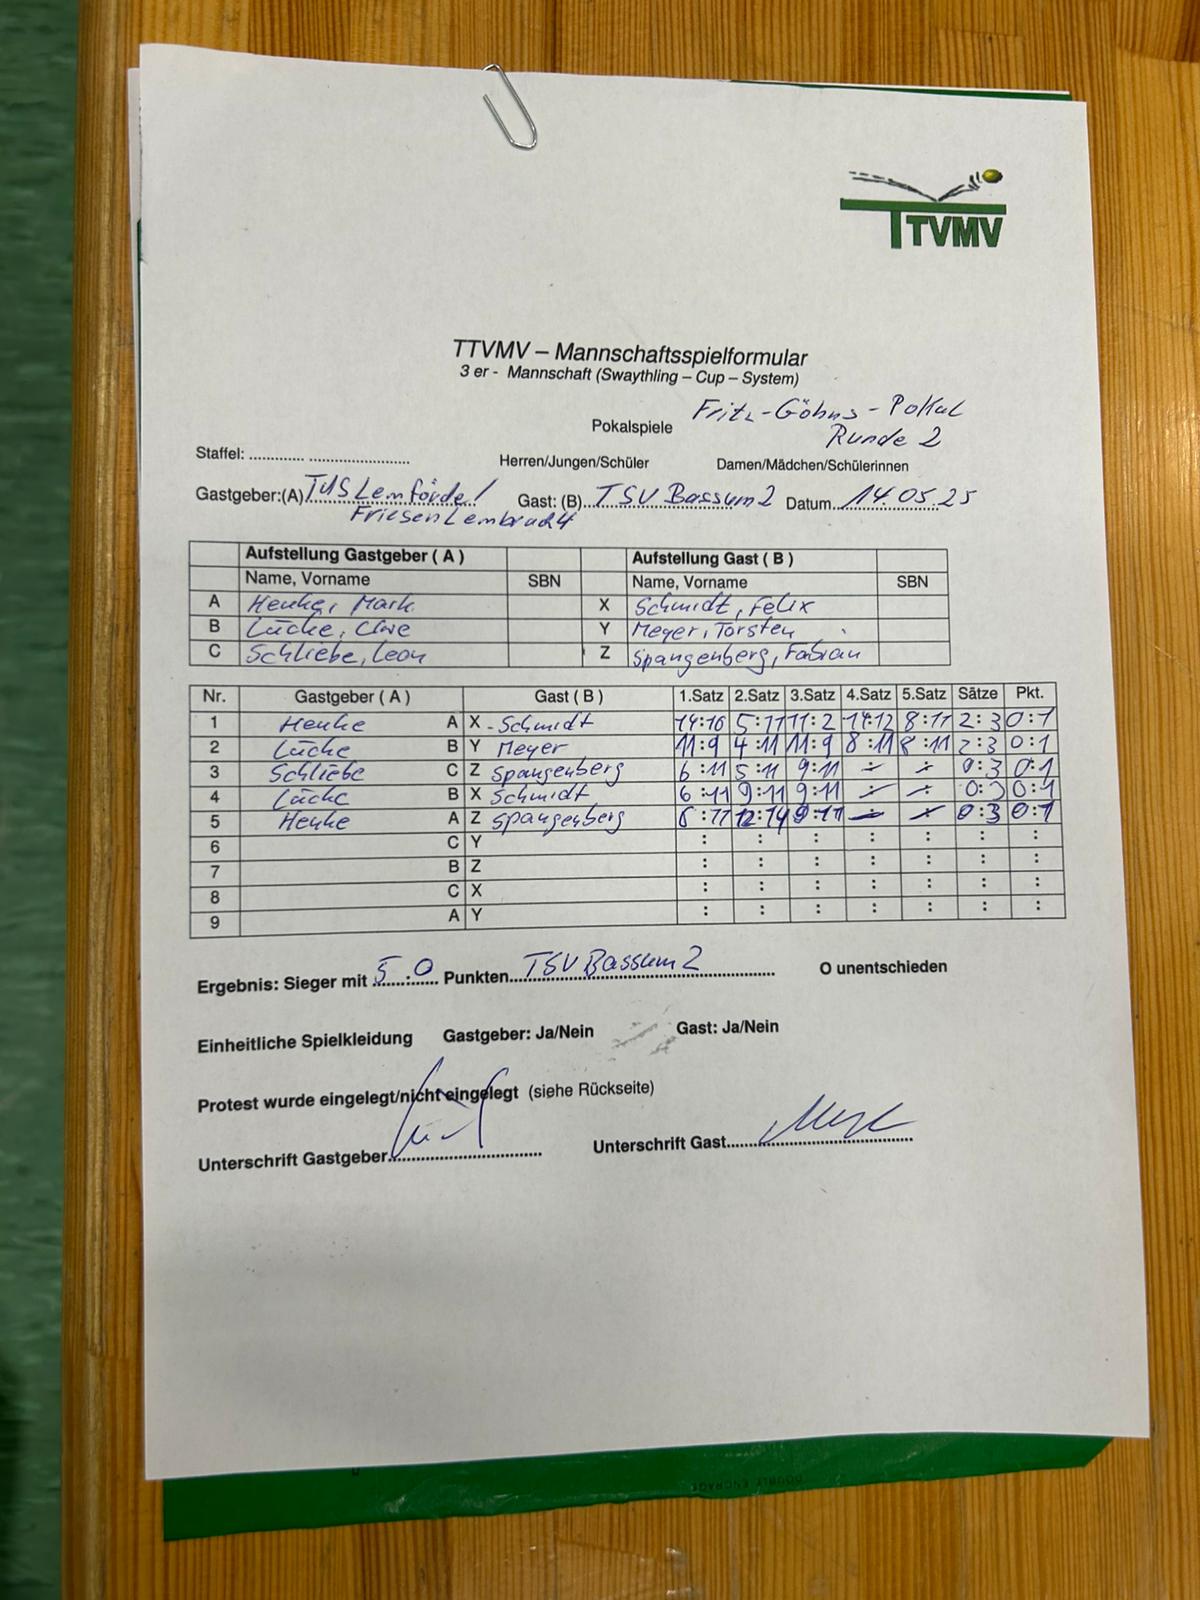 TTVMV
TTVMV – Mannschaftsspielformular
3 er - Mannschaft (Swaythling – Cup – System)
Pokalspiele Fritz-Göhns-Pokal
Runde 2
Staffel: ............ ......................
Herren/Jungen/Schüler Damen/Mädchen/Schülerinnen
Gastgeber:(A) TUS Lemförde/ Gast: (B) TSV Bassum 2 Datum 14.05.25
Friesen Lembruch
Aufstellung Gastgeber ( A ) Aufstellung Gast ( B )
Name, Vorname SBN Name, Vorname SBN
A Henke, Mark X Schmidt, Felix
B Lücke, Y Meyer, Torsten
C Schliebe, Leon Z Spangenberg, Fabian
Nr. Gastgeber ( A ) Gast ( B ) 1.Satz 2.Satz 3.Satz 4.Satz 5.Satz Sätze Pkt.
1 Henke A X Schmidt 5:11 11:2 8:11 2:3 0:1
2 Lücke B Y Meyer 11:9 4:11 11:9 8:11 8:11 2:3 0:1
3 Schliebe C Z Spangenberg 6:11 5:11 9:11 ÷ ÷ 0:3 0:1
4 Lücke B X Schmidt 6:11 9:11 9:11 ÷ ÷ 0:3 0:1
5 Henke A Z Spangenberg 12:14 9:11 ÷ ÷ 0:3 0:1
6 C Y : : : : : : :
7 B Z : : : : : : :
8 C X : : : : : : :
9 A Y : : : : : : :
Ergebnis: Sieger mit 5:0 Punkten TSV Bassum 2 O unentschieden
Einheitliche Spielkleidung Gastgeber: Ja/Nein Gast: Ja/Nein
Protest wurde eingelegt/nicht eingelegt (siehe Rückseite)
Unterschrift Gastgeber Unterschrift Gast